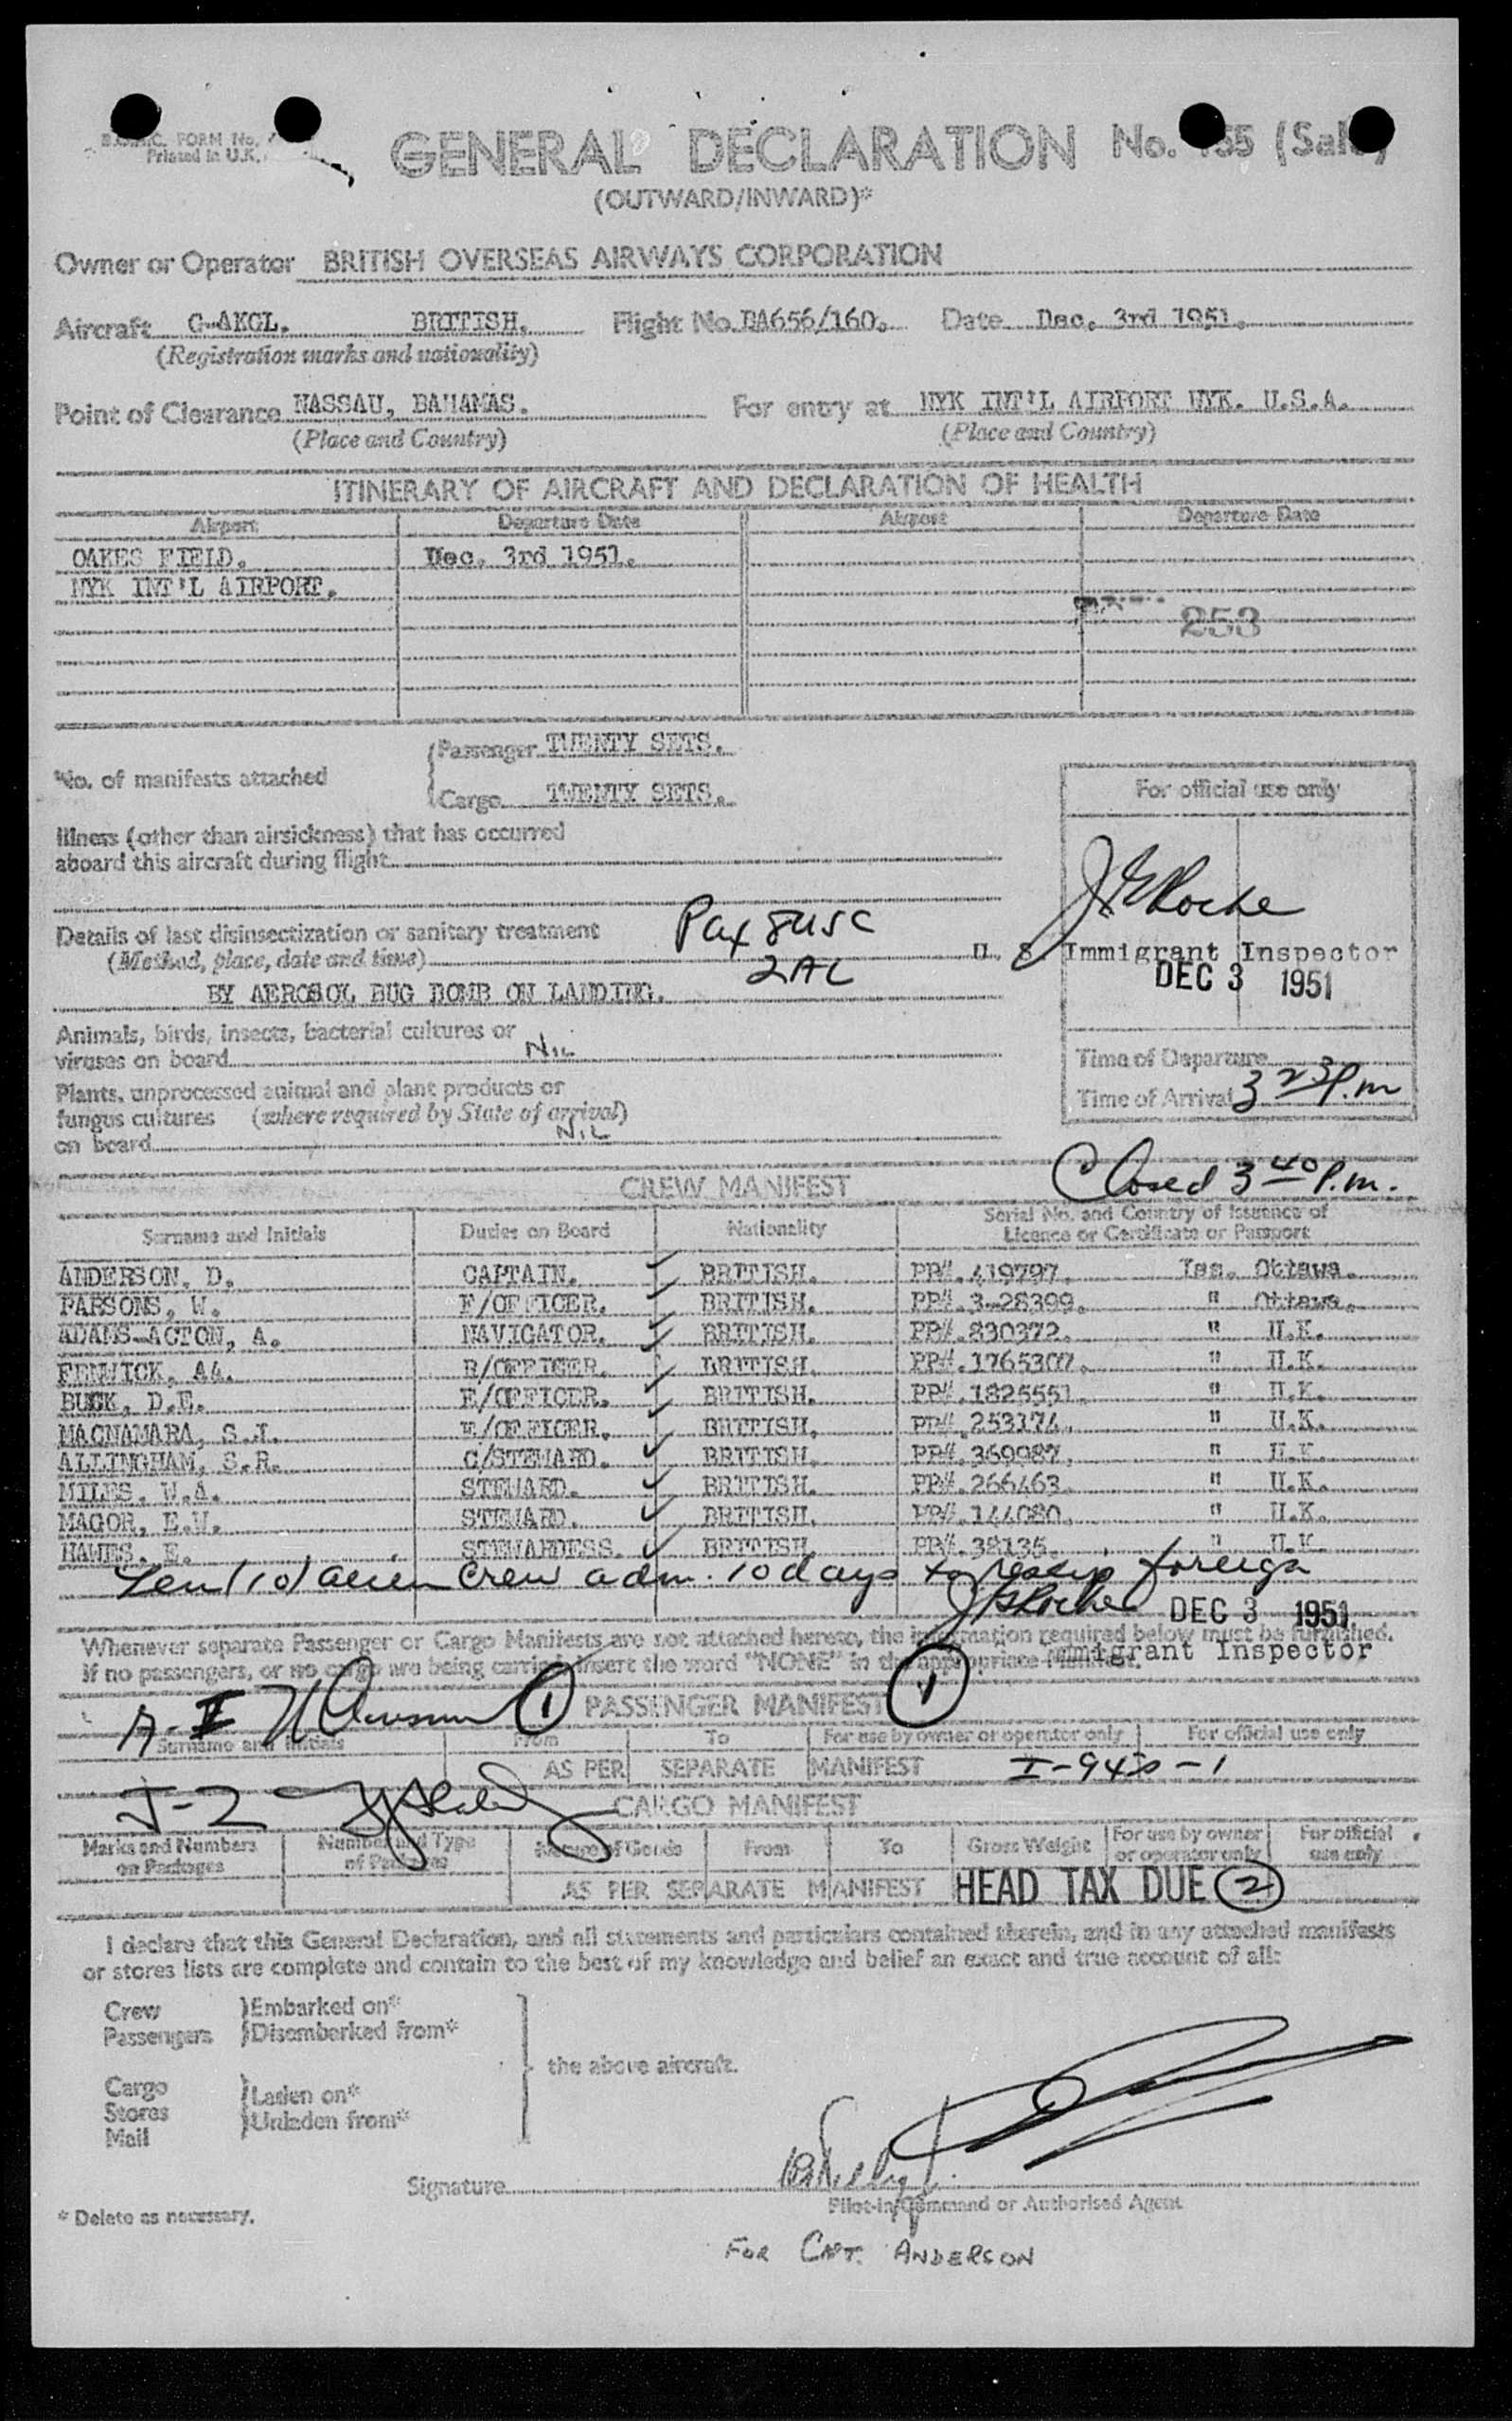 B.O.A.C. FORM No.
Printed in U.K.
GENERAL DECLARATION No. 155 (Sale)
(OUTWARD/INWARD)*
Owner or Operator BRITISH OVERSEAS AIRWAYS CORPORATION
Aircraft G-AKGL. BRITISH. Flight No. BA656/160. Date Dec. 3rd 1951.
(Registration marks and nationality)
Point of Clearance NASSAU, BAHAMAS. For entry at NYK INT'L AIRPORT NYK. U.S.A.
(Place and Country) (Place and Country)
ITINERARY OF AIRCRAFT AND DECLARATION OF HEALTH
Airport Departure Date Airport Departure Date
OAKES FIELD. Dec. 3rd 1951.
NYK INT'L AIRPORT.
253
No. of manifests attached
Passenger TWENTY SETS.
Cargo TWENTY SETS.
For official use only
Illness (other than airsickness) that has occurred
aboard this aircraft during flight
Details of last disinsectization or sanitary treatment
(Method, place, date and time)
Pax 8USC
2AL
BY AEROSOL BUG BOMB ON LANDING.
U. S. Immigrant Inspector
DEC 3 1951
Animals, birds, insects, bacterial cultures or
viruses on board NIL
Plants, unprocessed animal and plant products or
fungus cultures (where required by State of arrival)
on board NIL
Time of Departure
Time of Arrival 3 23 P.m
Closed 3 40 P.m.
CREW MANIFEST
Surname and Initials Duties on Board Nationality Serial No. and Country of Issuance of
Licence or Certificate or Passport
ANDERSON, D. CAPTAIN. BRITISH. PP#.419797. Iss. Ottawa.
PARSONS, W. F/OFFICER. BRITISH. PP#.3-28399. " Ottawa.
ADAMS-ACTON, A. NAVIGATOR. BRITISH. PP#.830372. " U.K.
FENWICK, AA. R/OFFICER. BRITISH. PP#.1765307. " U.K.
BUCK, D.E. E/OFFICER. BRITISH. PP#.1825551. " U.K.
MACNAMARA, S.J. E/OFFICER. BRITISH. PP#.253174. " U.K.
ALLINGHAM, S.R. C/STEWARD. BRITISH. PP#.369987. " U.K.
MILES, W.A. STEWARD. BRITISH. PP#.266463. " U.K.
MAGOR, E.W. STEWARD. BRITISH. PP#.144080. " U.K.
HAWES, E. STEWARDESS. BRITISH. PP#.38135. " U.K.
Ten (10) alien Crew adm. 10 days to reship foreign
DEC 3 1951
Whenever separate Passenger or Cargo Manifests are not attached hereto, the information required below must be furnished.
If no passengers, or no cargo are being carried, insert the word "NONE" in the appropriate Manifest.
Immigrant Inspector
A-I 1 PASSENGER MANIFEST 1
Surname and Initials From To For use by owner or operator only For official use only
AS PER SEPARATE MANIFEST I-94s-1
J-2
CARGO MANIFEST
Marks and Numbers on Packages Number and Type of Packages Nature of Goods From To Gross Weight For use by owner or operator only For official use only
AS PER SEPARATE MANIFEST HEAD TAX DUE 2
I declare that this General Declaration, and all statements and particulars contained therein, and in any attached manifests
or stores lists are complete and contain to the best of my knowledge and belief an exact and true account of all:
Crew Embarked on*
Passengers Disembarked from*
the above aircraft.
Cargo Laden on*
Stores Unladen from*
Mail
Signature
Pilot-in-Command or Authorised Agent
* Delete as necessary.
FOR CAPT. ANDERSON